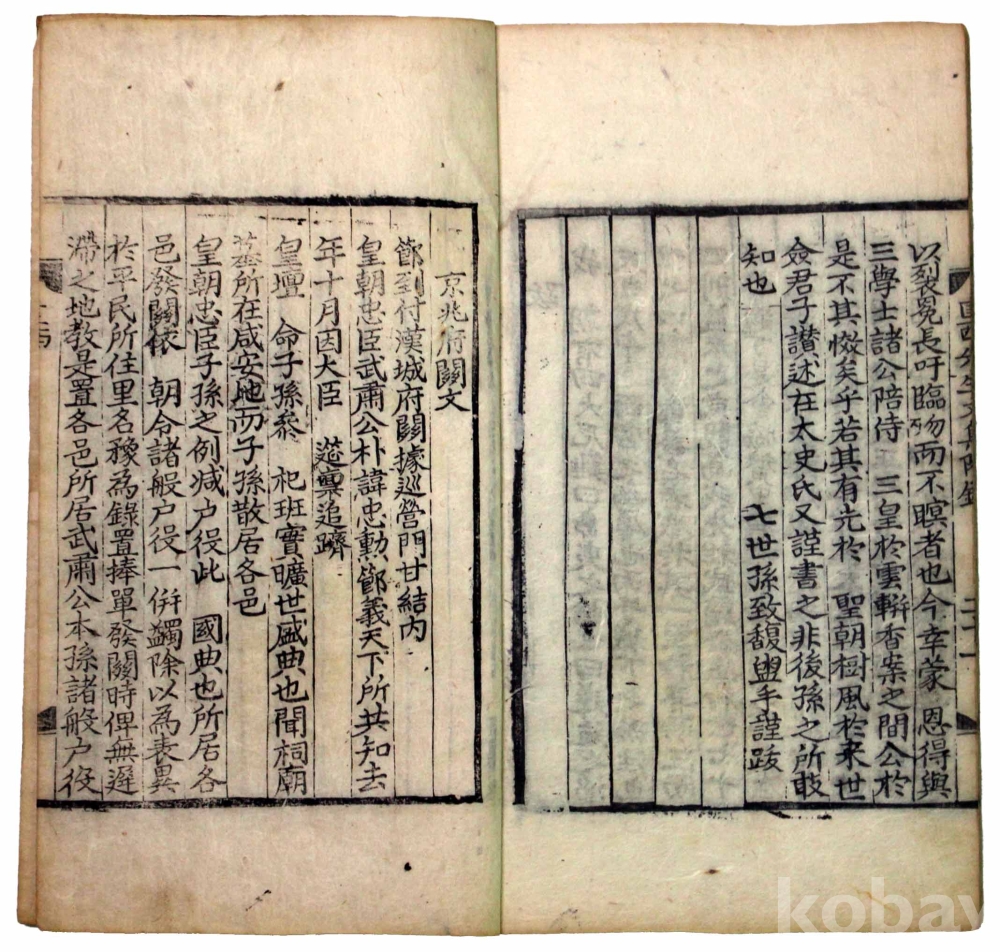 以裂冕長吁臨歾而不瞑者也今幸蒙 恩得與
三學士諸公陪侍 三皇於雲輧香案之間公於
是不其慨矣乎若其有光於 聖朝樹風於來世
僉君子讃述在太史氏又謹書之非後孫之所敢
知也
七世孫致馥盥手謹跋
京兆府關文
節到付漢城府關據巡營門甘結內
皇朝忠臣武肅公朴諱忠勳節義天下所共知去
年十月因大臣 筵稟追躋
皇壇 命子孫叅 祀班實曠世盛典也聞祠廟
墓所在咸安地而子孫散居各邑
皇朝忠臣子孫之例减户役此 國典也所居各
邑發關依 朝令諸般户役一倂蠲除以為表異
於平民所住里名豫為錄置捧單發關時俾無遲
滯之地教是置各邑所居武肅公本孫諸般户役
二十一
kobay